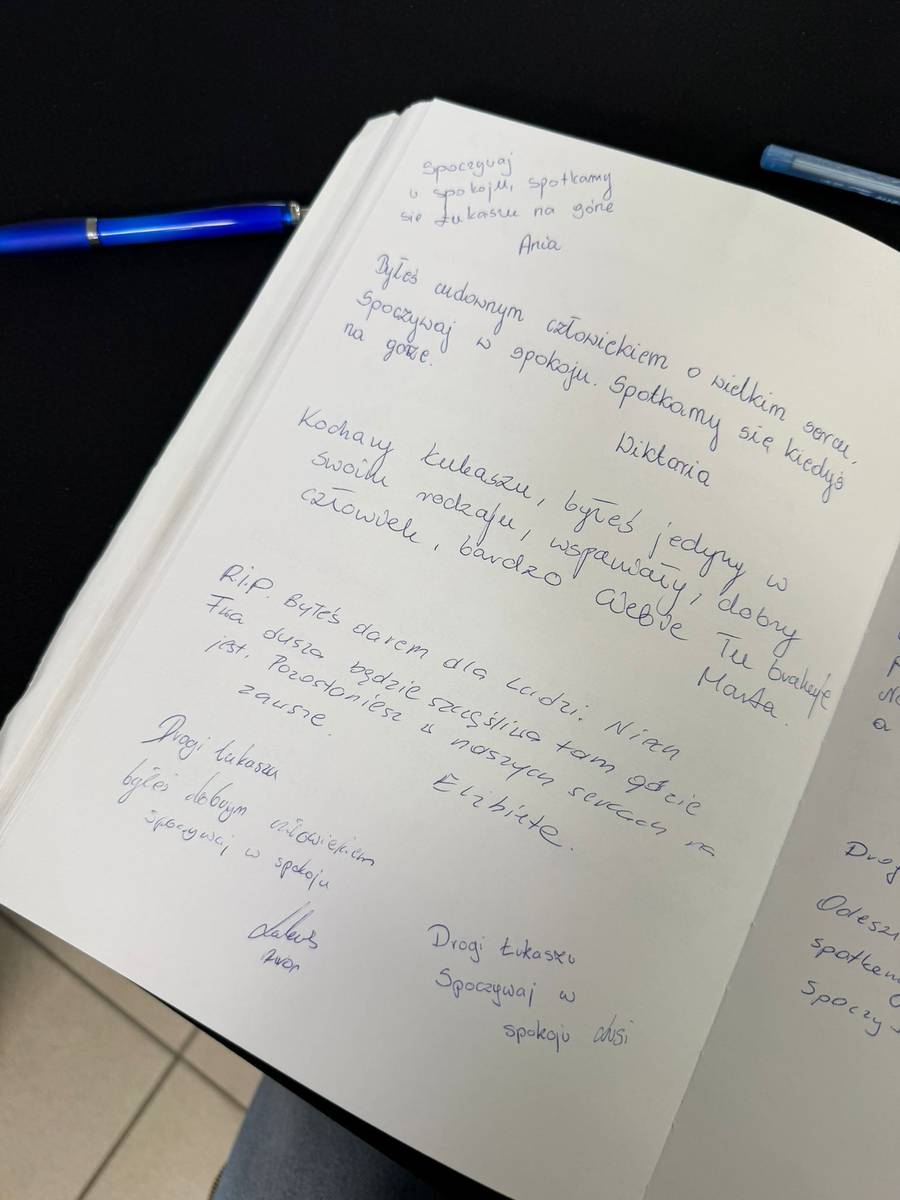 Spoczywaj
w spokoju, spotkamy
się Łukaszu na górze
Ania
Byłeś cudownym człowiekiem o wielkim sercu,
Spoczywaj w spokoju. Spotkamy się kiedyś
na górze.
Wiktoria
Kochany Łukaszu, byłeś jedyny w
swoim rodzaju, wspaniały, dobry
człowiek, bardzo Ciebie Tu brakuje
Marta.
R.i.P. Byłeś darem dla Ludzi. Niech
Twa dusza będzie szczęśliwa tam gdzie
jest. Pozostaniesz w naszych sercach na
zawsze.
Elżbieta.
Drogi Łukaszu
byłeś dobrym człowiekiem
spoczywaj w spokoju
Drogi Łukaszu
Spoczywaj w
spokoju
Drog
Odeszł
spotkam
Spoczy